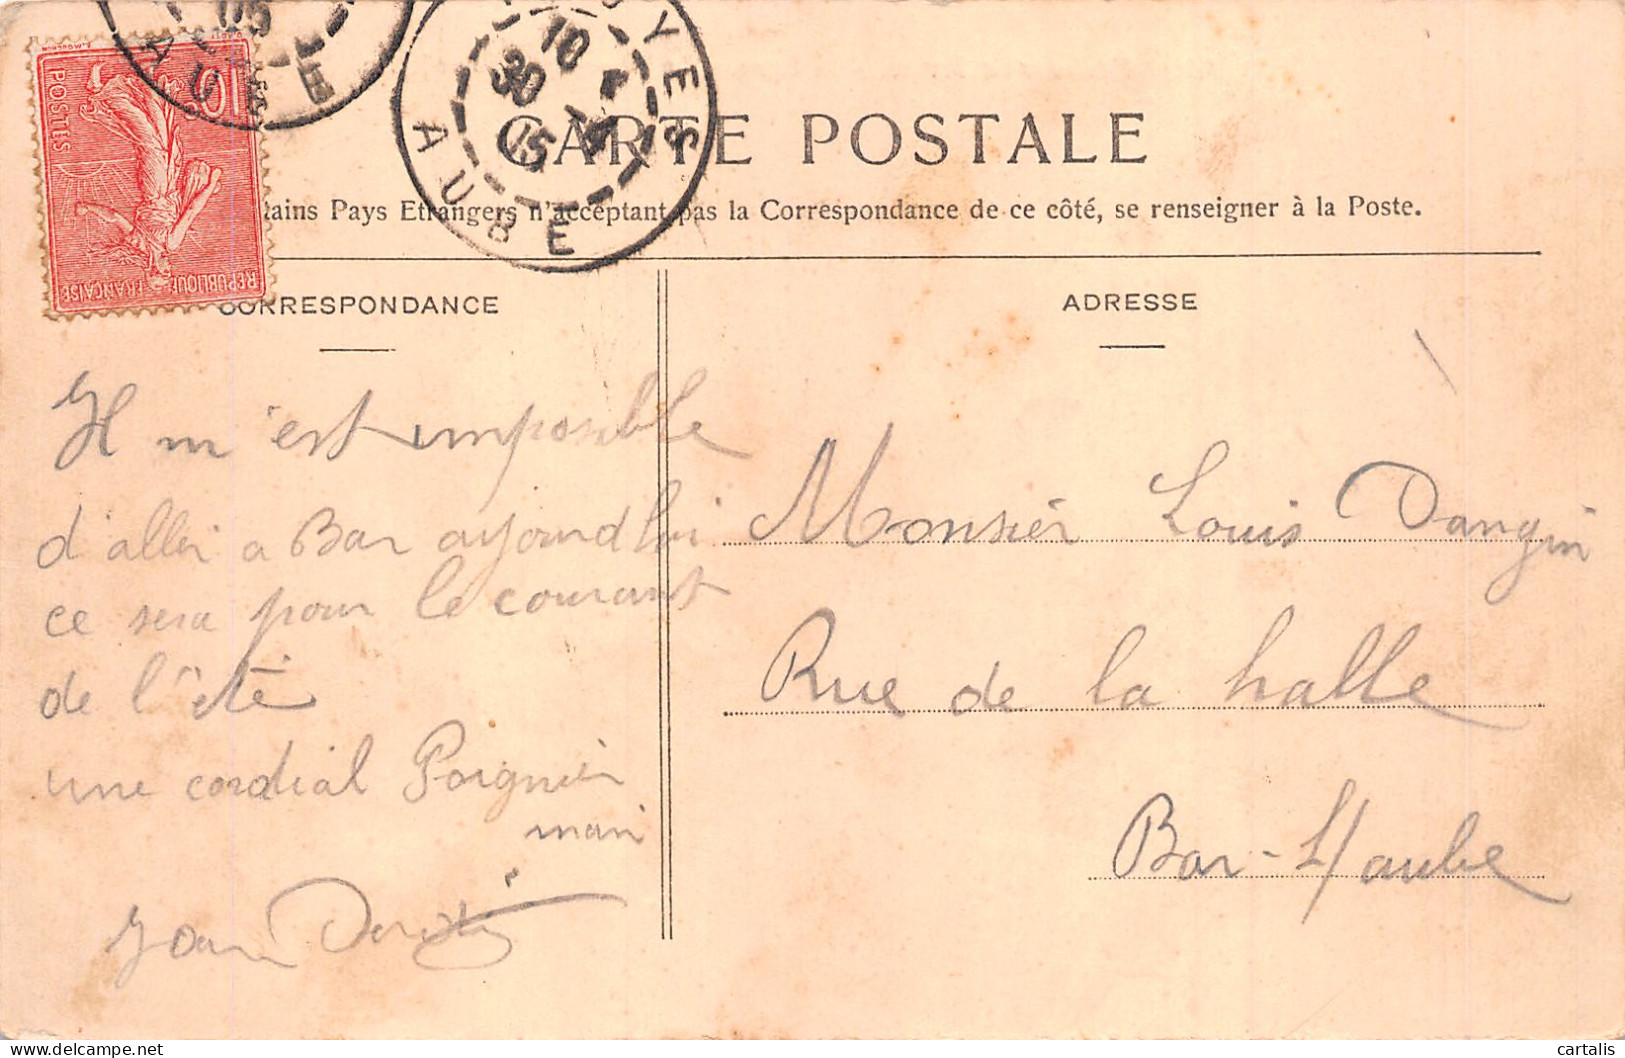 10
POSTES
REPUBLIQUE FRANÇAISE
05
AUBE
TROYES
10
30 -4
05
AUBE
CARTE POSTALE
tains Pays Etrangers n'acceptant pas la Correspondance de ce côté, se renseigner à la Poste.
CORRESPONDANCE
Il m'est imposible
d'aller a Bar aujourd'hui
ce sera pour le courant
de l'été
une cordial Poignier
main
ADRESSE
Monsier Louis Dangin
Rue de la halle
Bar-s/aube
cartalis